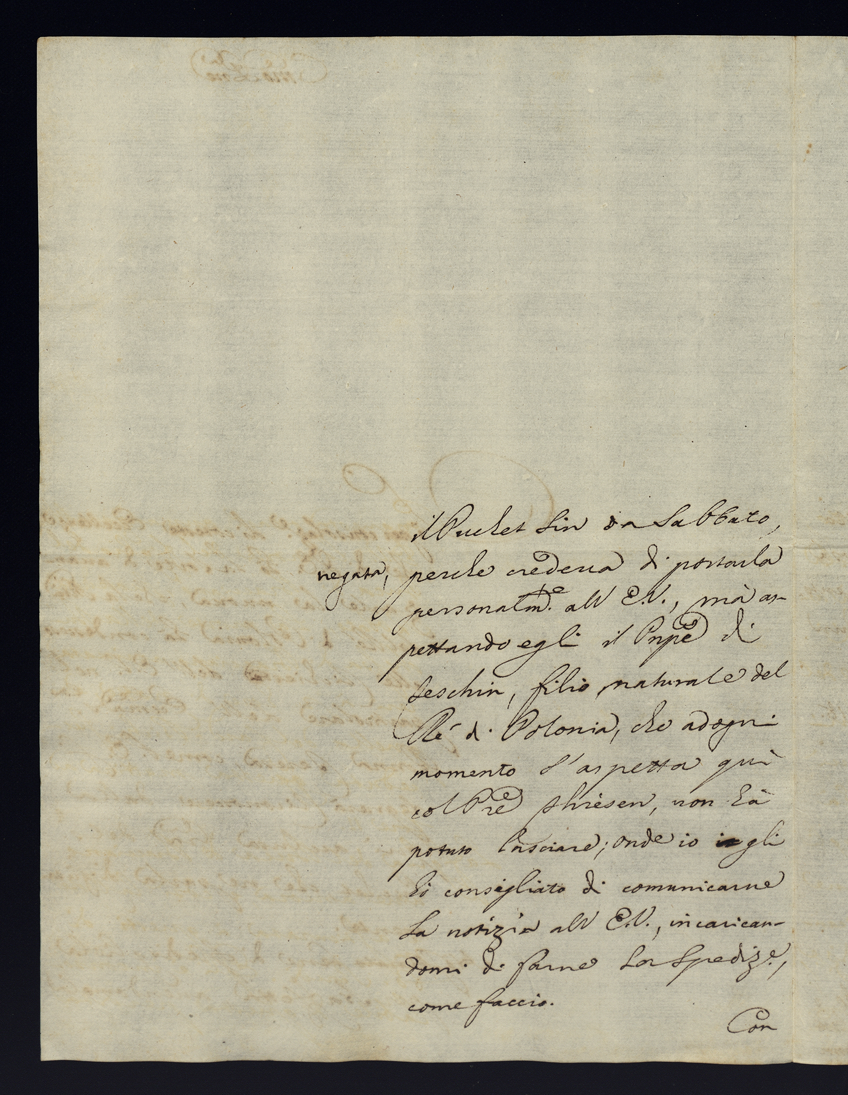 il Packet sin da Sabbato,
negata, perche credeva di portarla
personalmte. all' E.V., mà as-
pettando egli il Pnpe di
Teschin, filio naturale del
Ré di Polonia, che adogni
momento s'aspetta quì
col Pre , non hà
potuto lasciare; onde io gli
hò consigliato di comunicarne
la notizia all' E.V., incarican-
domi di farne la Spedize,
come faccio.
Con